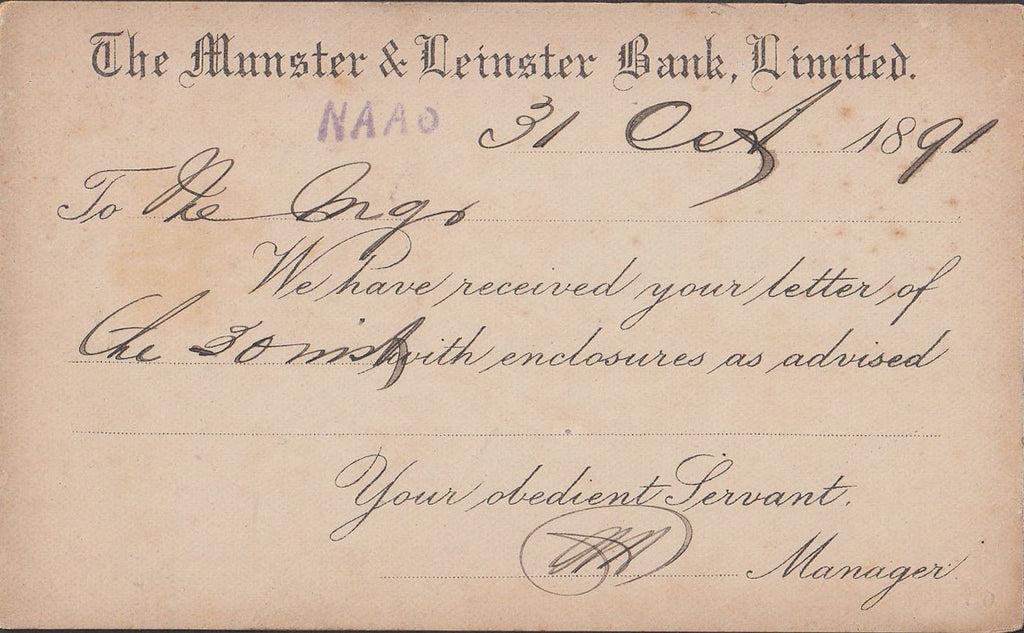 The Munster & Leinster Bank, Limited.
NAAO
31 Oct 1891
To The Mngr
We have received your letter of
the 30 inst with enclosures as advised
Your obedient Servant.
Manager